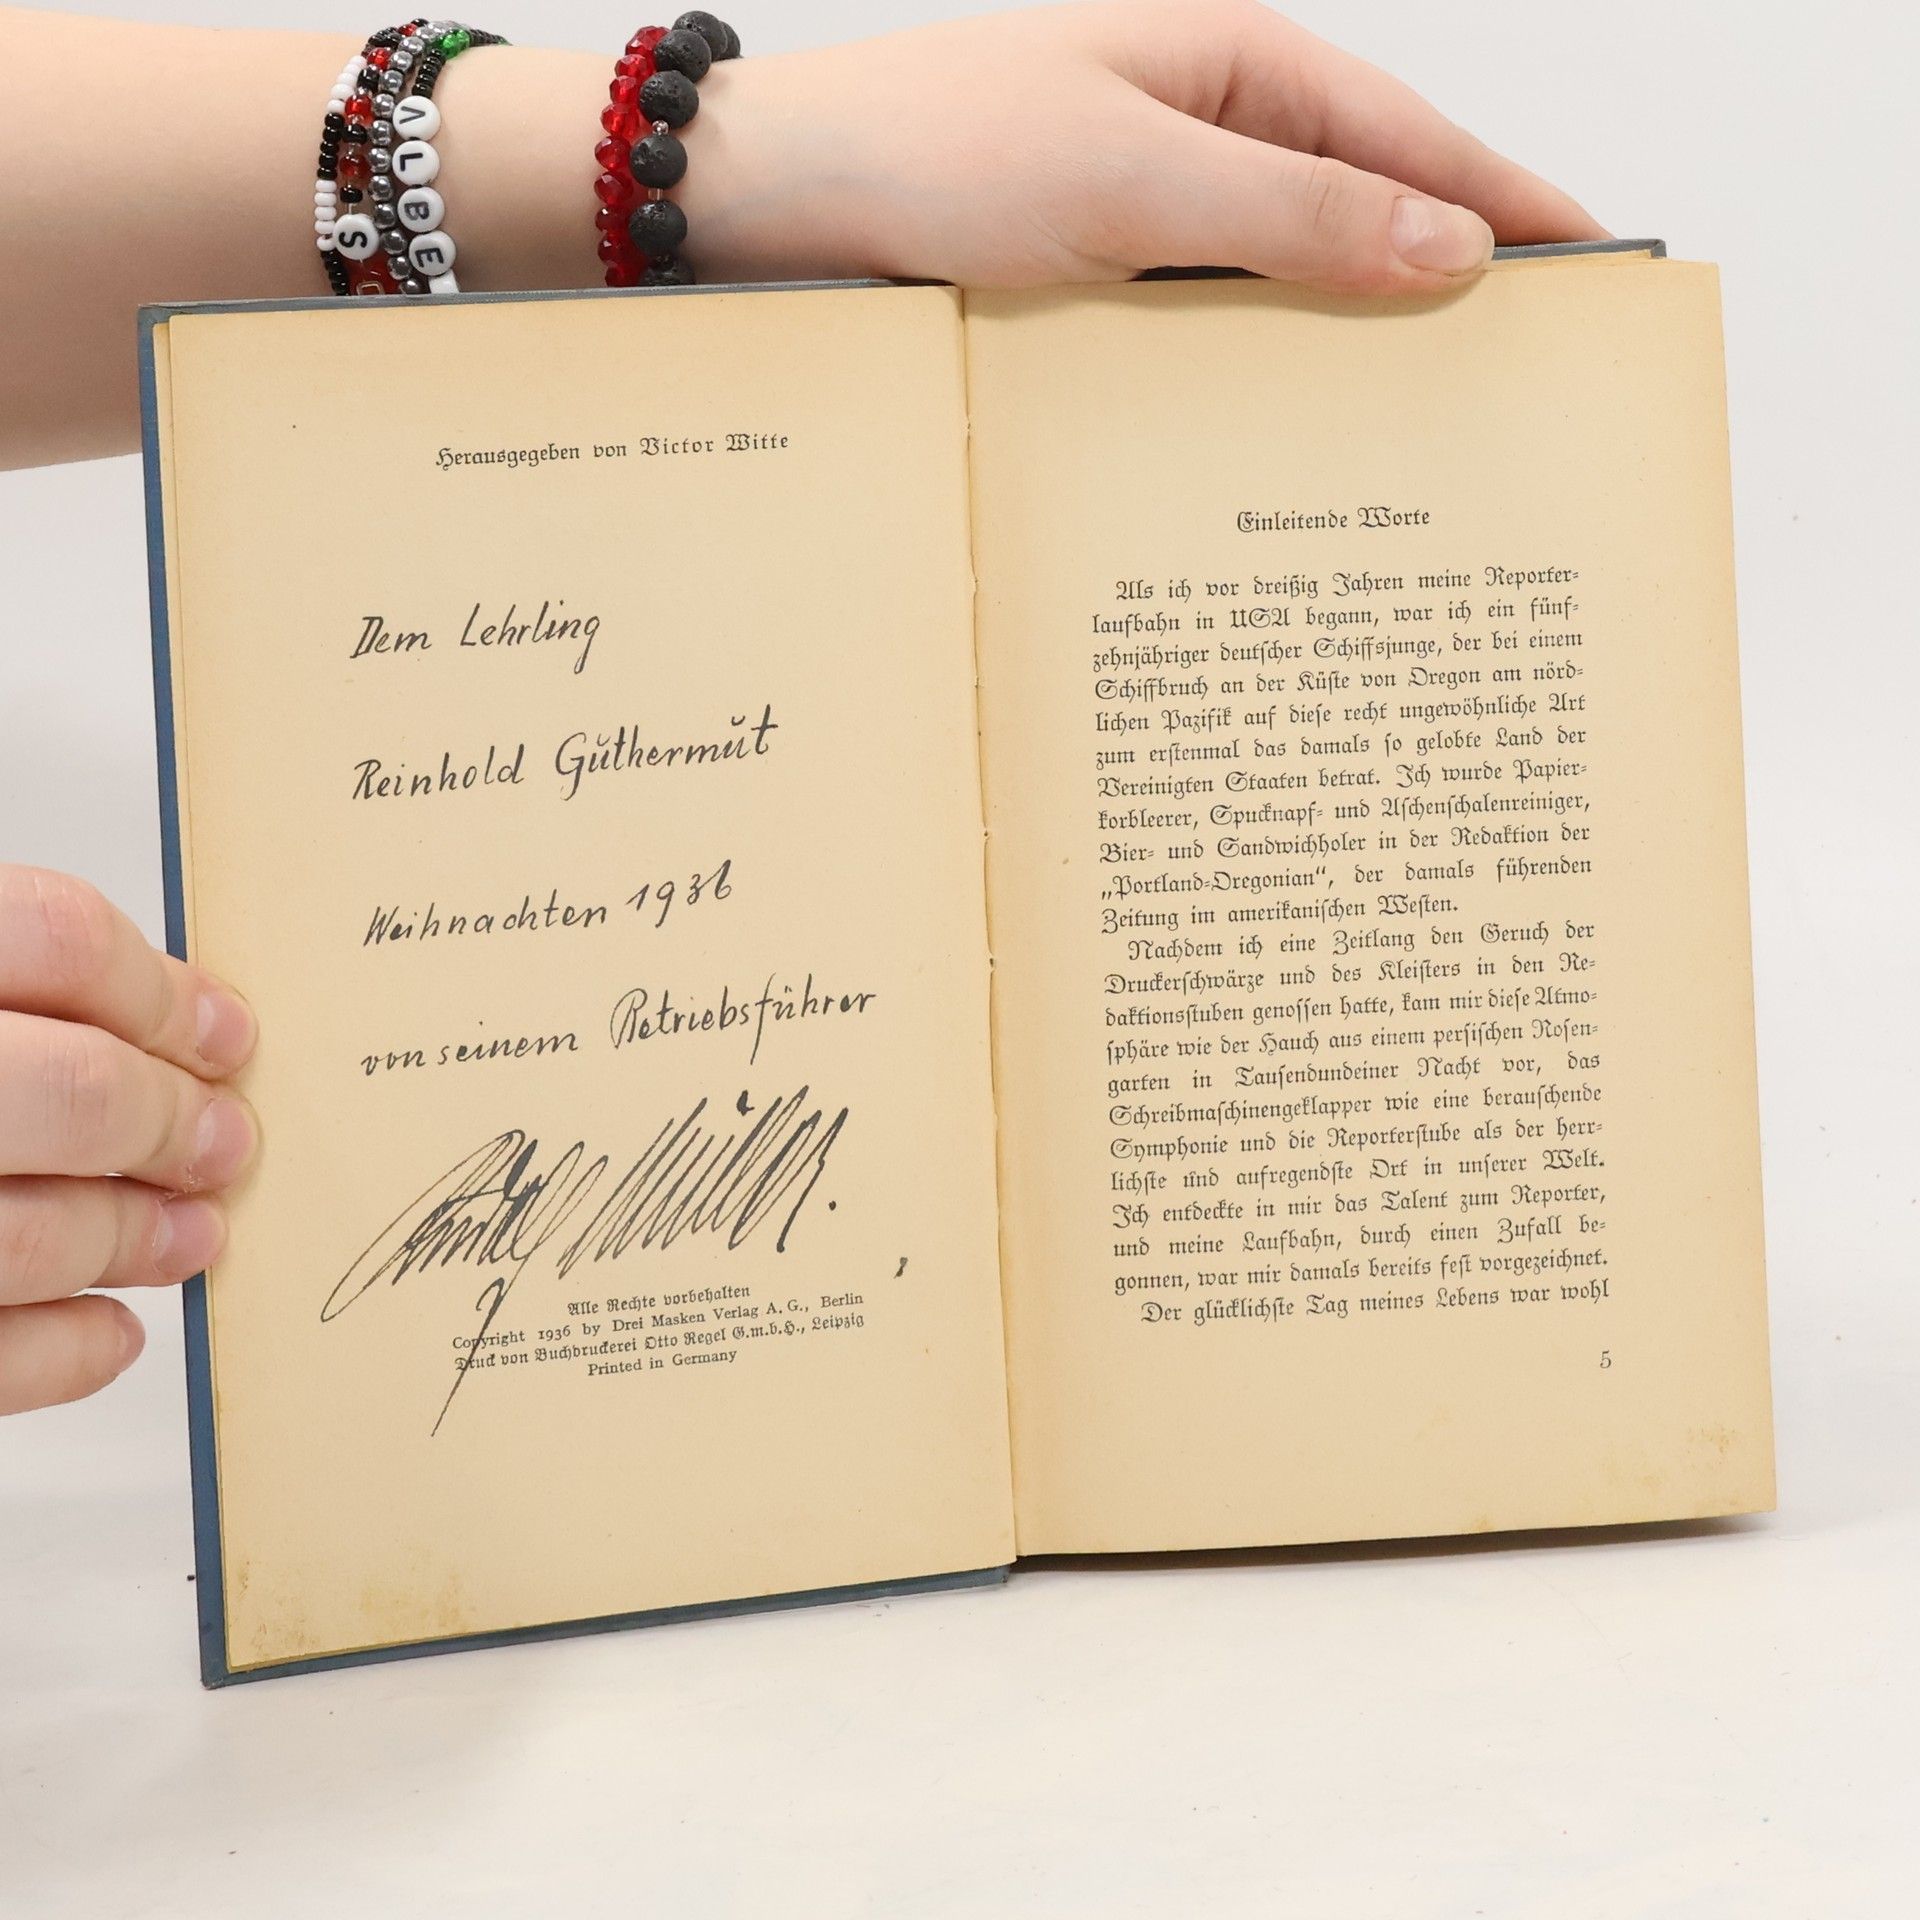 ALBE
S
Herausgegeben von Victor Witte
Dem Lehrling
Reinhold Guthermut
Weihnachten 1936
von seinem Betriebsführer
Müller.
Alle Rechte vorbehalten
Copyright 1936 by Drei Masken Verlag A. G., Berlin
Druck von Buchdruckerei Otto Regel G.m.b.H., Leipzig
Printed in Germany
Einleitende Worte
Als ich vor dreißig Jahren meine Reporter-
laufbahn in USA begann, war ich ein fünf-
zehnjähriger deutscher Schiffsjunge, der bei einem
Schiffbruch an der Küste von Oregon am nörd-
lichen Pazifik auf diese recht ungewöhnliche Art
zum erstenmal das damals so gelobte Land der
Vereinigten Staaten betrat. Ich wurde Papier-
korbleerer, Spucknapf- und Aschenschalenreiniger,
Bier- und Sandwichholer in der Redaktion der
„Portland-Oregonian“, der damals führenden
Zeitung im amerikanischen Westen.
Nachdem ich eine Zeitlang den Geruch der
Druckerschwärze und des Kleisters in den Re-
daktionsstuben genossen hatte, kam mir diese Atmo-
sphäre wie der Hauch aus einem persischen Rosen-
garten in Tausendundeiner Nacht vor, das
Schreibmaschinengeklapper wie eine berauschende
Symphonie und die Reporterstube als der herr-
lichste und aufregendste Ort in unserer Welt.
Ich entdeckte in mir das Talent zum Reporter,
und meine Laufbahn, durch einen Zufall be-
gonnen, war mir damals bereits fest vorgezeichnet.
Der glücklichste Tag meines Lebens war wohl
5